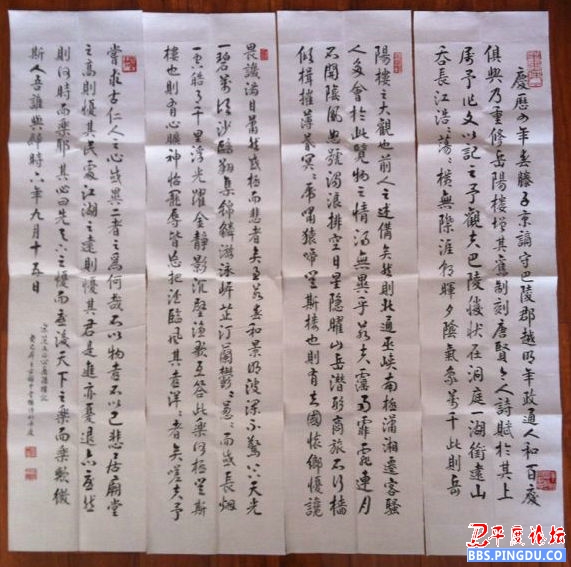 慶曆四年春滕子京謫守巴陵郡越明年政通人和百廢
俱興乃重修岳陽樓增其舊制刻唐賢今人詩賦於其上
屬予作文以記之予觀夫巴陵勝狀在洞庭一湖銜遠山
吞長江浩〻蕩〻橫無際涯朝暉夕陰氣象萬千此則岳
陽樓之大觀也前人之述備矣然則北通巫峽南極瀟湘遷客騷
人多會於此覽物之情得無異乎若夫霪雨霏霏連月
不開陰風怒號濁浪排空日星隱曜山岳潛形商旅不行檣
傾楫摧薄暮冥〻虎嘯猿啼登斯樓也則有去國懷鄉憂讒
畏譏滿目蕭然感極而悲者矣至若春和景明波瀾不驚上下天光
一碧萬頃沙鷗翔集錦鱗游泳岸芷汀蘭鬱〻青〻而或長煙
一空皓月千里浮光躍金靜影沉璧漁歌互答此樂何極登斯
樓也則有心曠神怡寵辱皆忘把酒臨風其喜洋〻者矣嗟夫予
嘗求古仁人之心或異二者之為何哉不以物喜不以己悲居廟堂
之高則憂其民處江湖之遠則憂其君是進亦憂退亦憂然
則何時而樂耶其必曰先天下之憂而憂後天下之樂而樂歟微
斯人吾誰與歸時六年九月十五日
宋范文正公岳陽樓記
平度论坛
BBS.PINGDU.CO